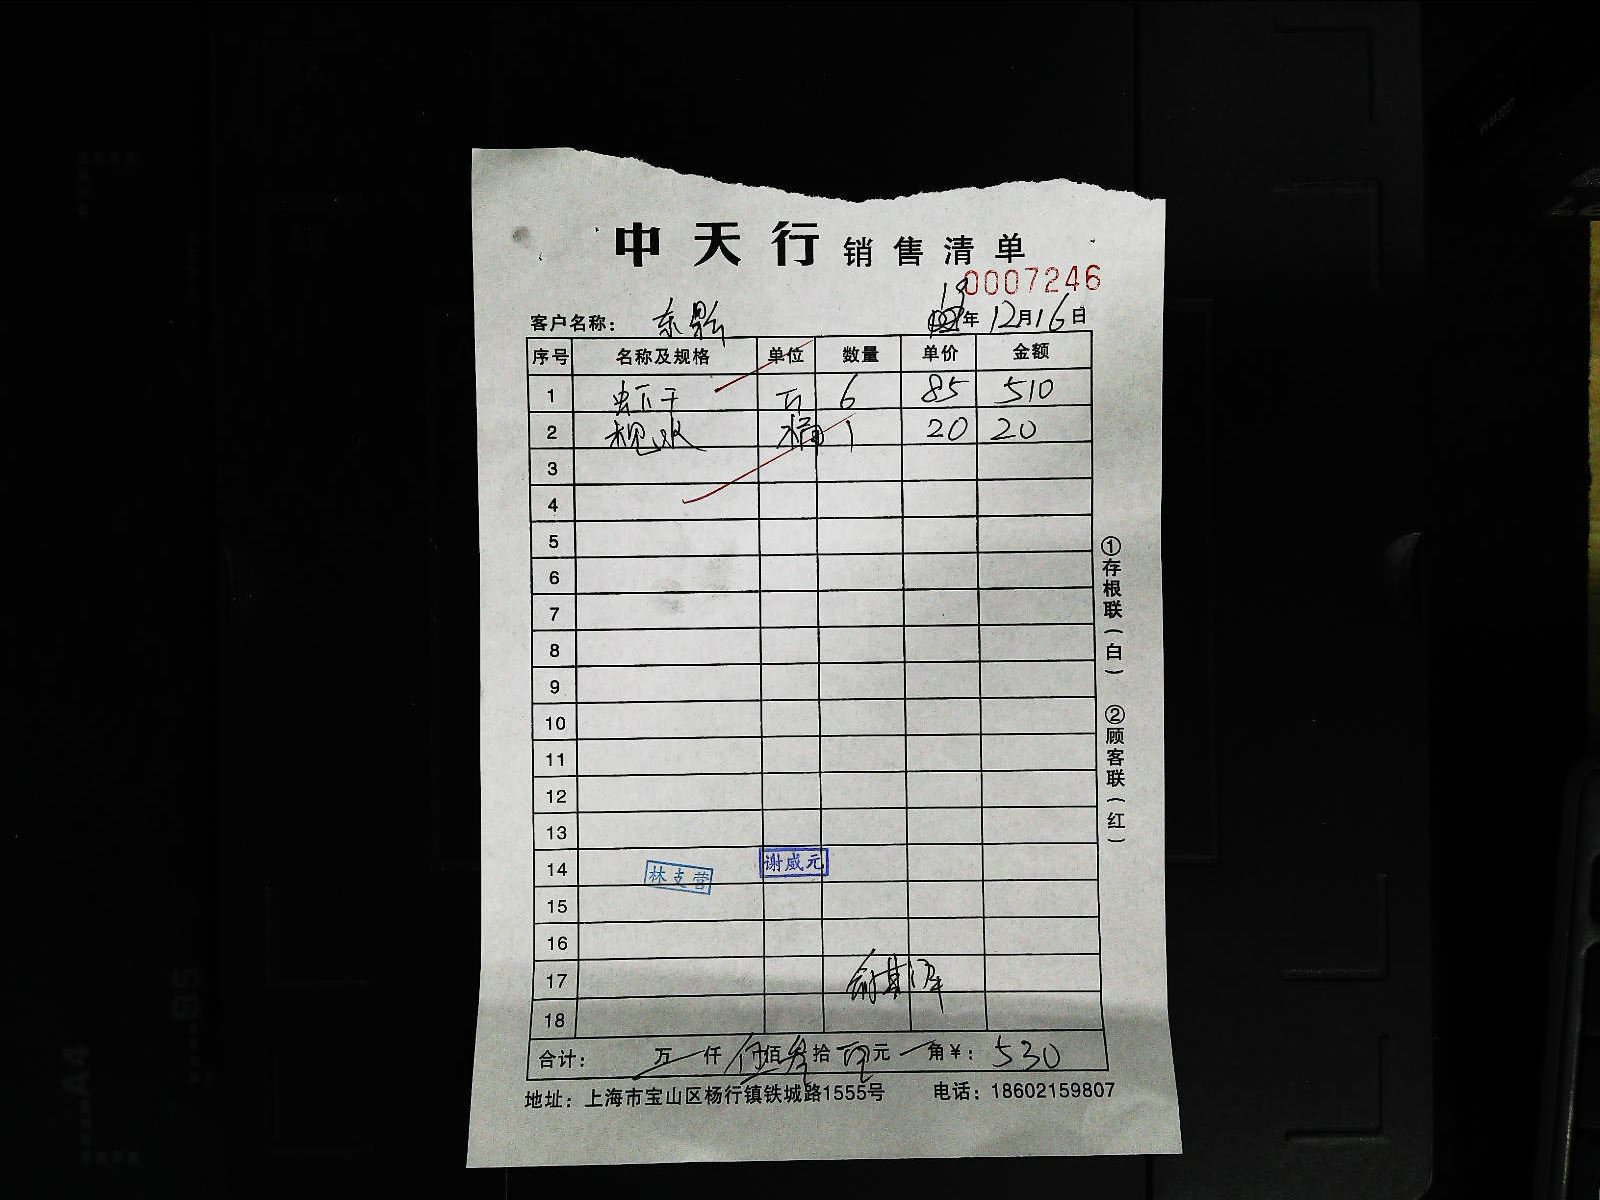 中天行 销售清单
0007246
客户名称： 东
19年12月16日
序号 名称及规格 单位 数量 单价 金额
1 虾干 斤 6 85 510
2 桶 1 20 20
3
4
5
6
7
8
9
10
11
12
13
14 林支营 谢威元
15
16
17
18
合计： 万 仟 伍佰叁拾 元 角¥：530
地址：上海市宝山区杨行镇铁城路1555号 电话：18602159807
①存根联（白） ②顾客联（红）
B5
A4